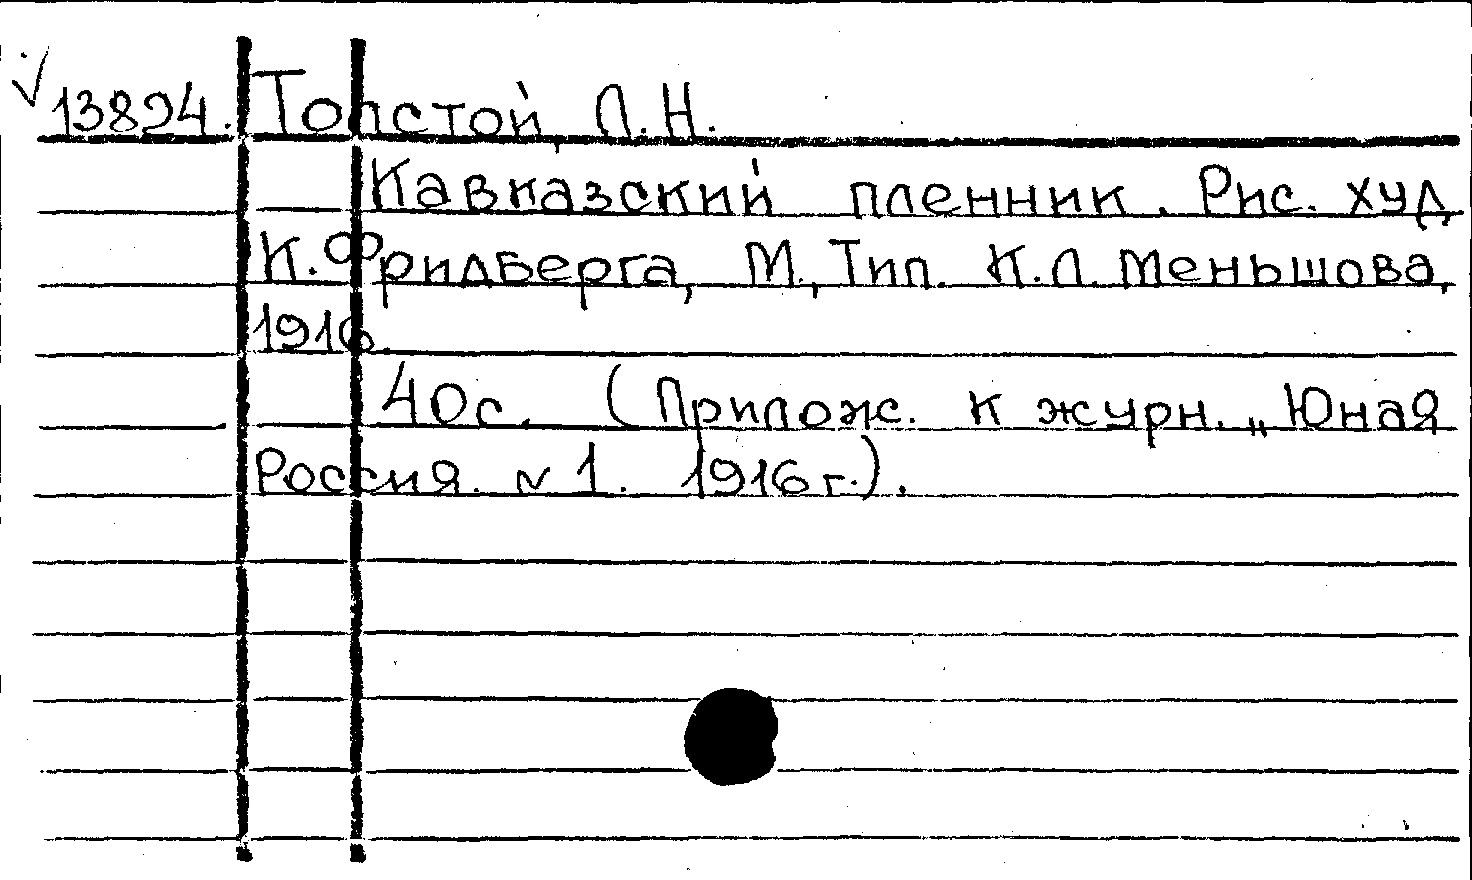 √ 13894. Толстой, Л. Н.
Кавказский пленник. Рис. худ.
К. Фридберга, М., Тип. К. Л. Меньшова,
1916.
40с. (Прилож. к журн. „Юная
Россия. N 1. 1916 г.).